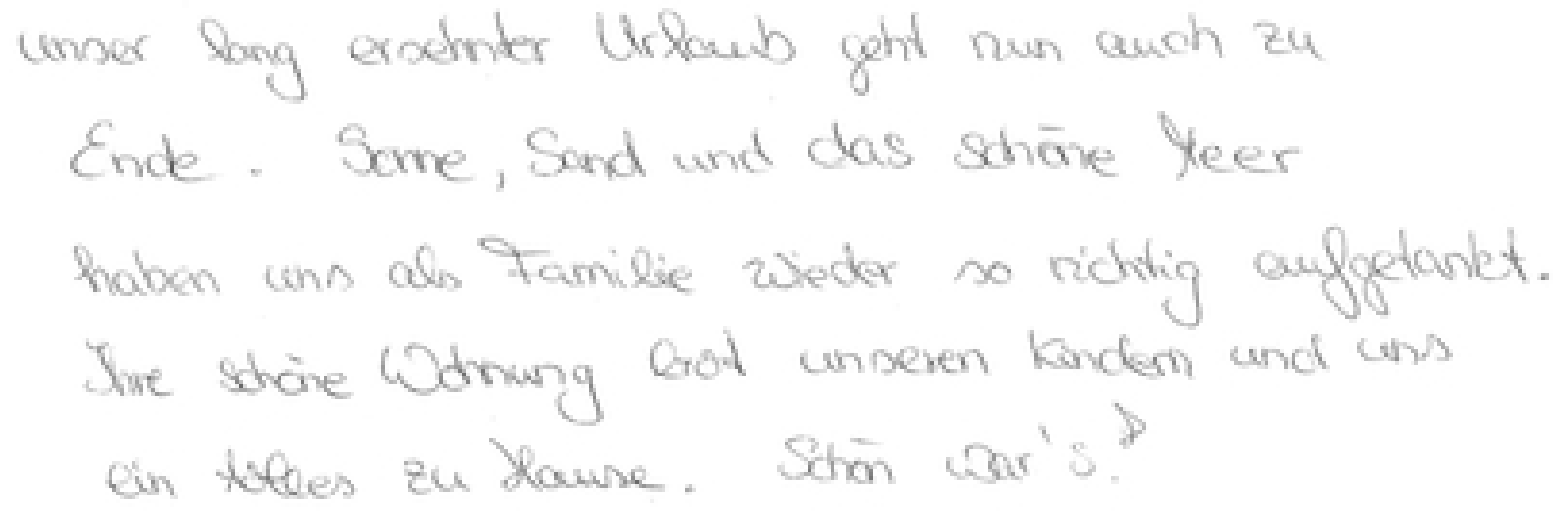 unser lang ersehnter Urlaub geht nun auch zu
Ende. Sonne, Sand und das schöne Meer
haben uns als Familie wieder so richtig aufgetankt.
Ihre schöne Wohnung bot unseren Kindern und uns
ein tolles zu Hause. Schön war's!